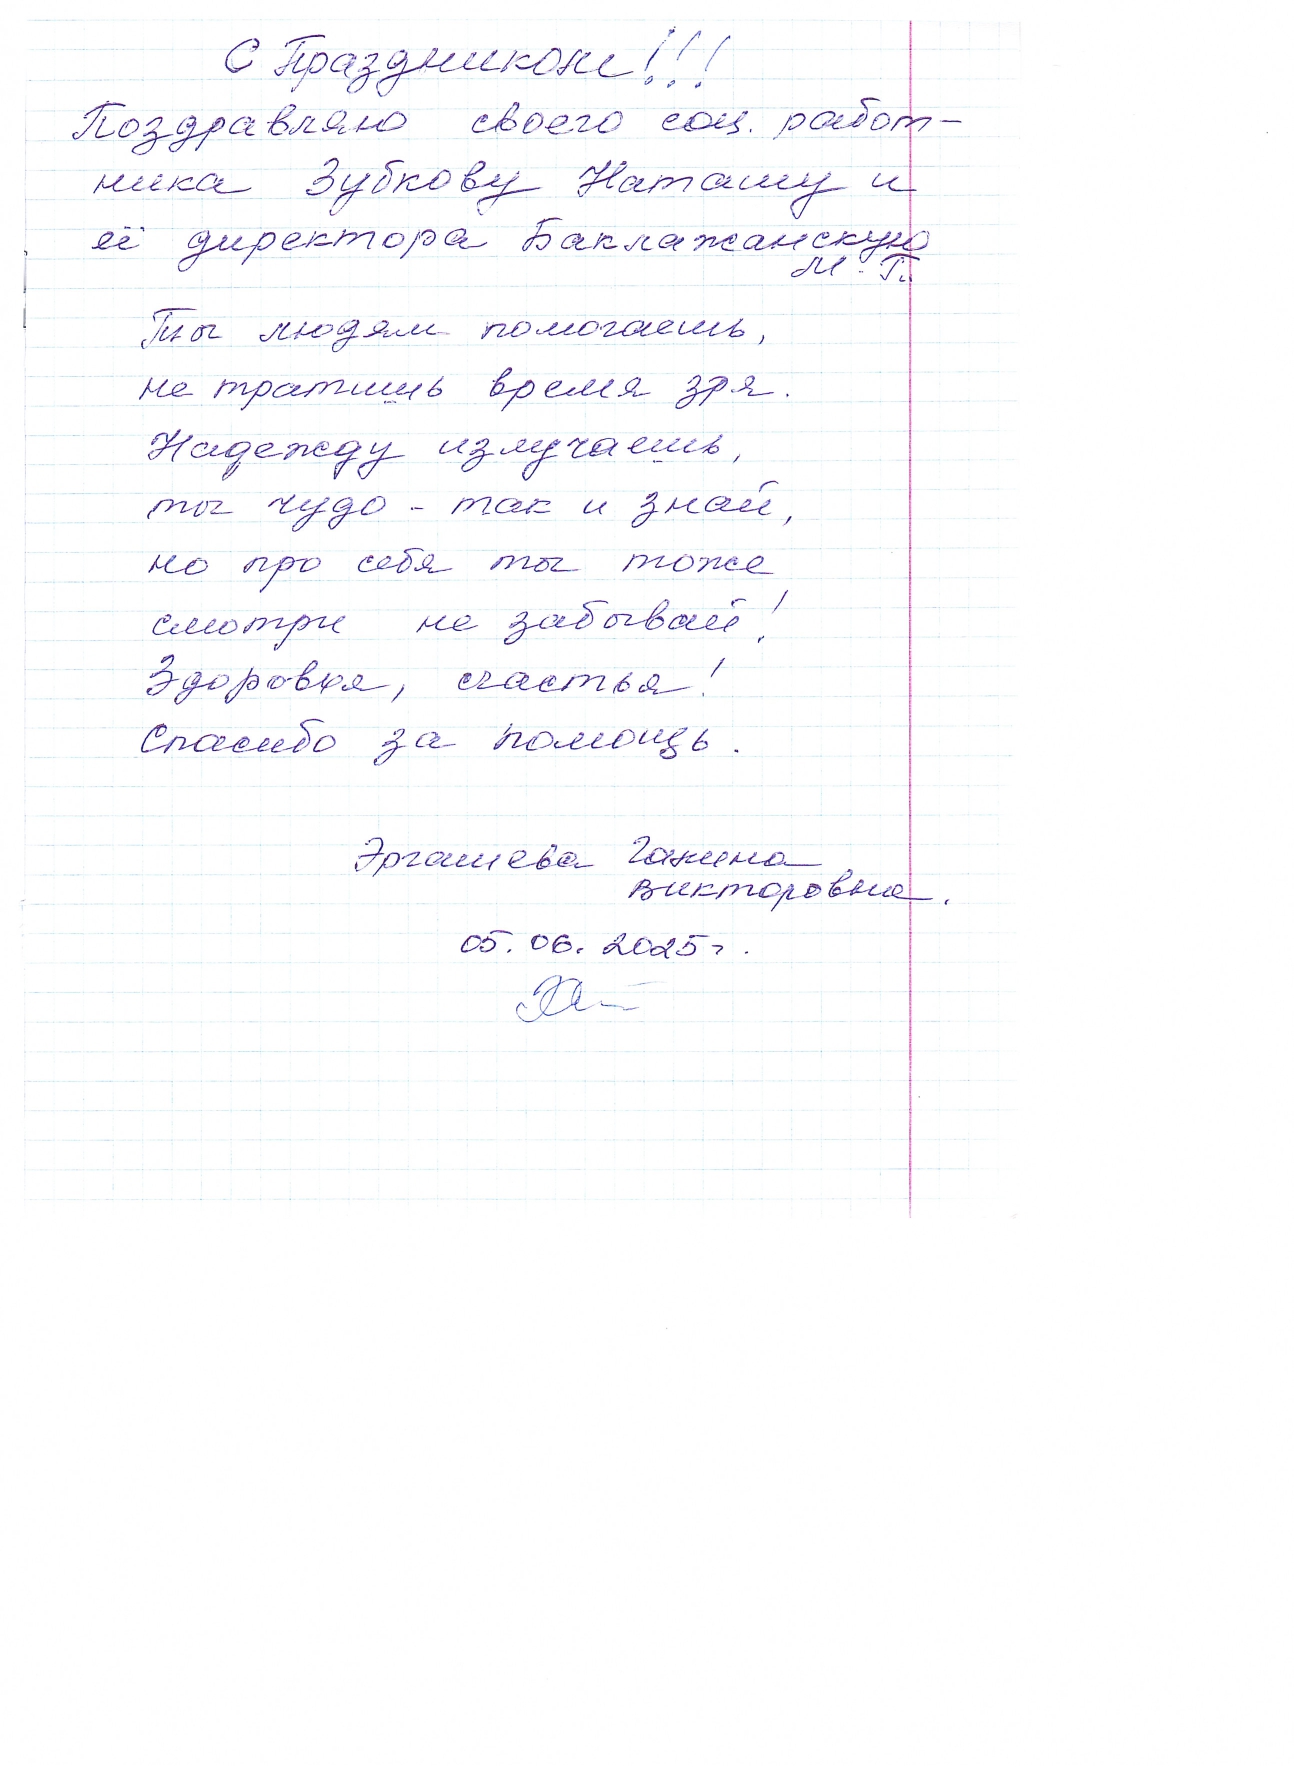 С Праздником!!!
Поздравляю своего соц. работ-
ника Зубкову Наташу и
её директора Баклажанскую
М. Г.
Ты людям помогаешь,
не тратишь время зря.
Надежду излучаешь,
ты чудо - так и знай,
но про себя ты тоже
смотри не забывай!
Здоровья, счастья!
Спасибо за помощь.
Эргашева Галина
Викторовна.
05.06.2025г.